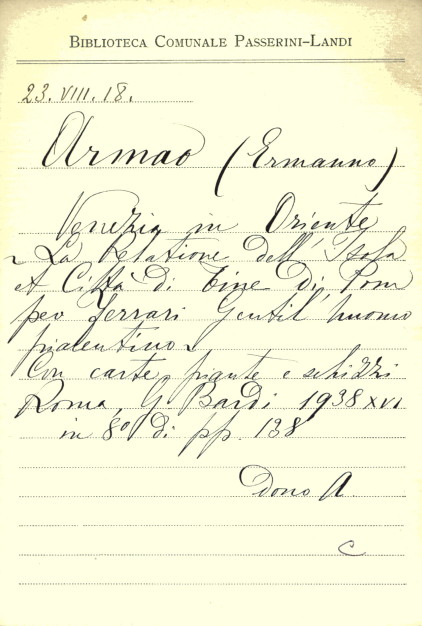 BIBLIOTECA COMUNALE PASSERINI-LANDI
23.VIII.18.
Armao (Ermanno)
Venezia in Oriente
~ La Relatione dell'Isola
et Città di Tine di Pom
peo Ferrari Gentil'huomo
piacentino ~
Con carte, piante e schizzi
Roma, G. Bardi 1938 XVI
in 8° di pp. 138
Dono A.
C